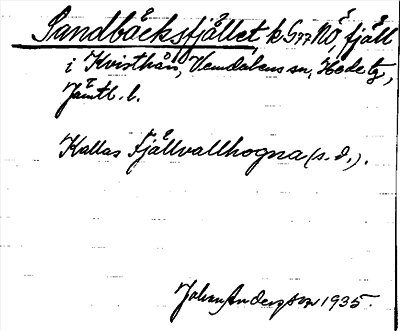 Sandbäcksfjället, k G77 NÖ, fjäll
i Kvisthån, Vemdalens sn, Hede tg,
Jämtl. l.
Kallas Fjällvallhogna (s. d.).
Johan Anderson 1935.